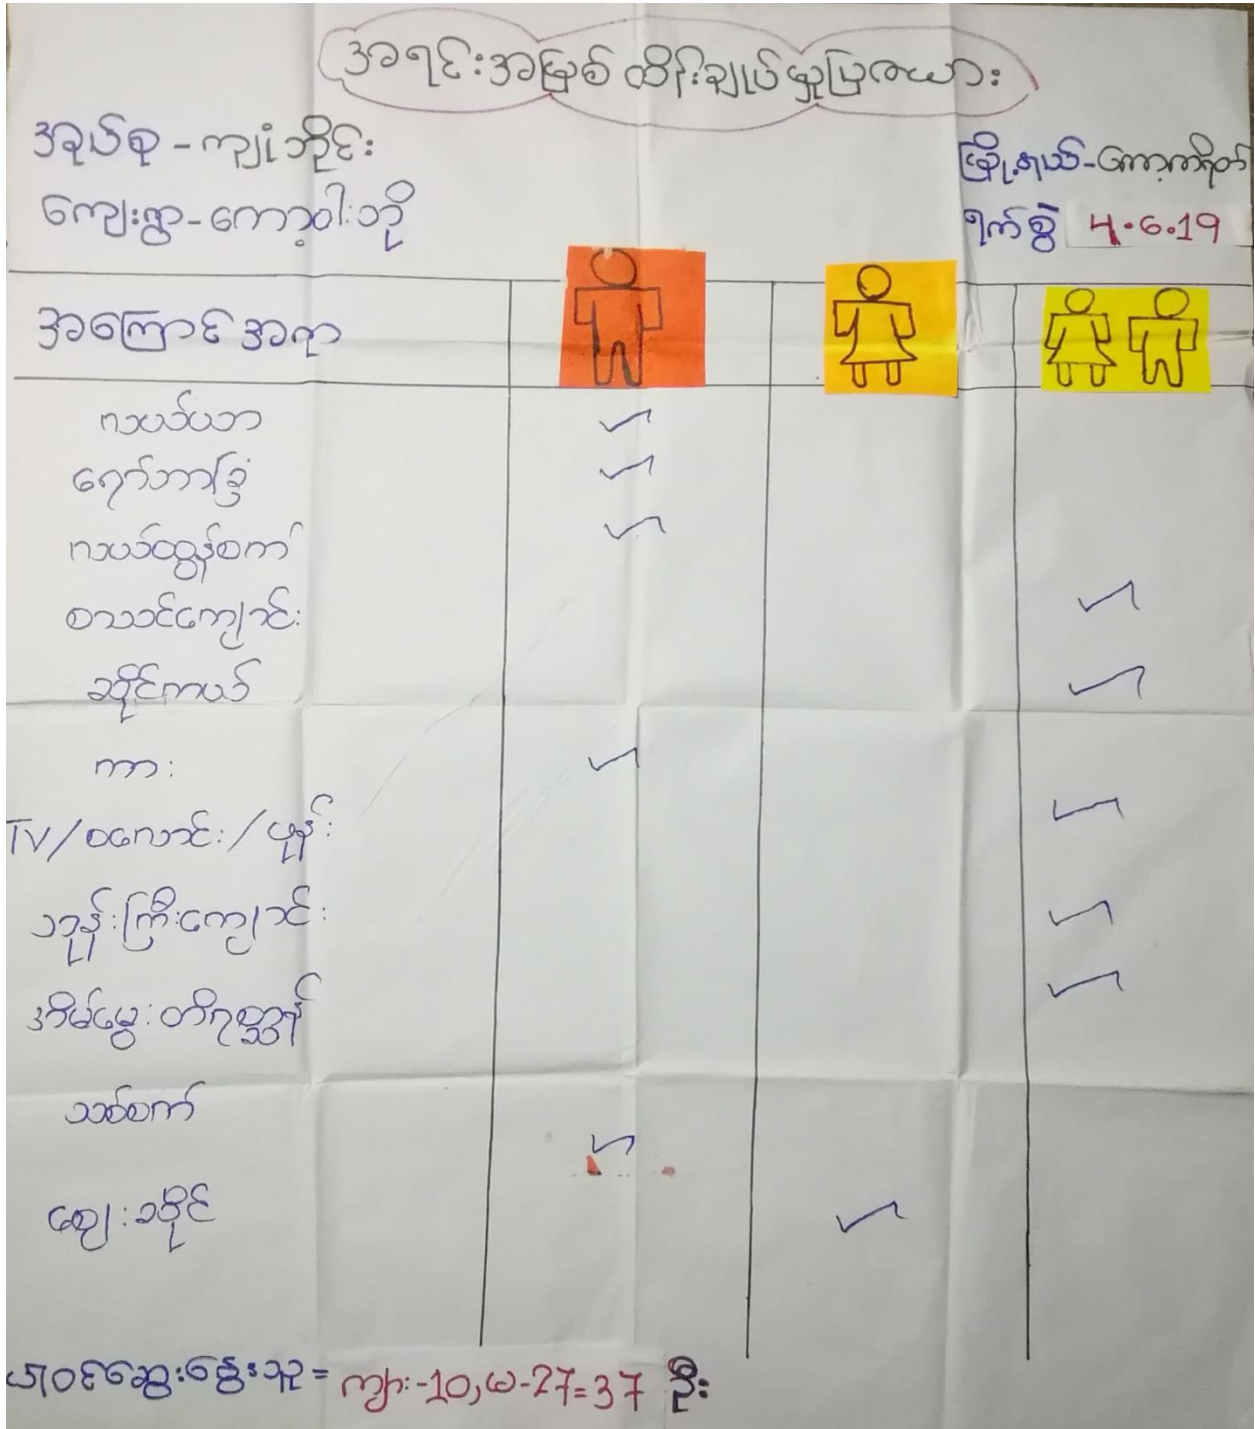 အရင်းအမြစ် ထိန်းချုပ်မှုပြဇယား
အုပ်စု - ကျုံဘိုင်း
မြို့နယ် - ကော့ကရိတ်
ကျေးရွာ - ကော့ဝါးဘို
ရက်စွဲ 4.6.19
အကြောင်အရာ
လယ်ယာ
ရော်ဘာခြံ
လယ်ထွန်စက်
စာသင်ကျောင်း
ဆိုင်ကယ်
ကား
TV/စလောင်း/ဖုန်း
ဘုန်းကြီးကျောင်း
အိမ်မွေးတိရစ္ဆာန်
သစ်စက်
ဈေးဆိုင်
ပါဝင်ဆွေးနွေးသူ = ကျား-10, မ-27=37 ဦး